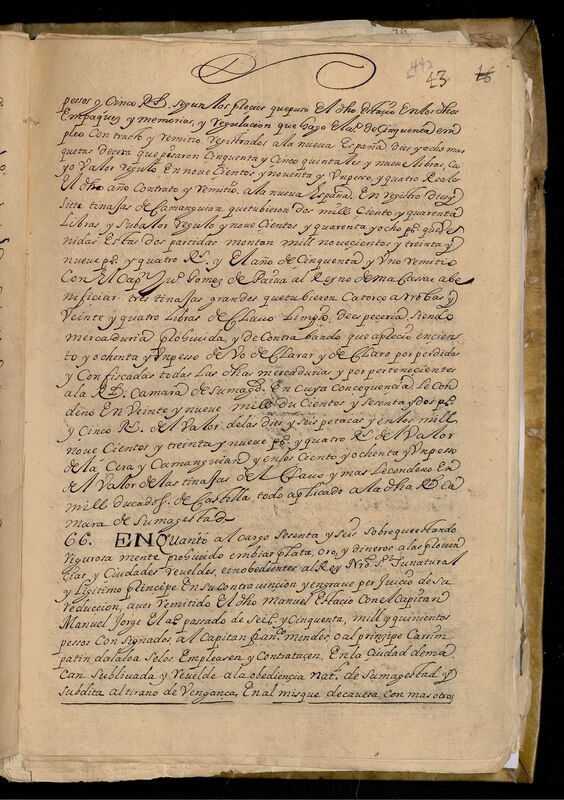 443
43 16
pessos y Cinco Rs. segun los precios que puso El dho estacio En los dhos
Empaques y memorias, y regulacion que hago El aº. de Cinquenta em
pleo Contrato y remitio registrados a la nueva España dies y ocho mar
quetas de cera que pesaron Cinquenta y Cinco quintales y nueve libras, Cu
yo valor regulo En nove Cientos y noventa y Un pesso, y quatro Reales
El dho año Contrato y Remitio a la nueva España En registro dies y
siete tinajas de Camanguian que tubieron dos mill Ciento y quarenta
Libras y su balor regulo y nove Cientos y quarenta y ocho ps. que Ve
nidas Estas dos partidas montan mill novecientos y treinta y
nueve ps. y quatro Rs. y El año de Cinquenta y Vno remitio
Con El Capn. Ju. Gomez de Paiva al Reyno de macassar, a be
neficiar tres tinajas grandes que tubieron Catorce arrobas y
Veinte y quatro Libras de Clavo Limpio de especeria siendo
mercaduria prohivida, y de Contrabando que aprecio en cien
to y ochenta y Un pesso de Vo declarar y declaro por perdidos
y Confiscadas todas Las dhas mercadurias y por pertenecientes
a la Rl. Camara de su magd. En cuya Concequencia le Con
deno En Veinte y nueve mill do Cientos y sesenta y dos ps.
y Cinco Rs. del Valor de las dies y seis petacas y en los mill
nove Cientos y treinta y nueve ps. y quatro Rs. del Valor
de la Cera y Camanguian y en los Ciento y ochenta y Un pesso
del Valor de las tinajas del Clavo y mas Le condeno En
mill ducados de Castilla todo aplicado a la dha Rl. Ca
mara de su magestad
66. ENQuanto al cargo sesenta y seis sobre que estando
rigurosa mente prohivido embiar plata, oro, y dineros a las provin
cias y Ciudades reveldes, e inobedientes al Rey Nro. Sr. su natural
y Ligitimo principe En su contravincion y en grave per Juicio de su
reduccion, aver remitido El dho manuel Estacio Con el Capitan
Manuel Jorge El aº. passado de seisº. y Cinquenta, mill y quinientos
pessos Con signados al Capitan franº. mendes, o al principe Carrin
patin daloa se los Empleasen y Contratacen, En la Ciudad de ma
can sublivada y revelde a la obediencia natl. de su magestad y
subdita al tirano de Verganca, En almisque de caveza, Con mas otros